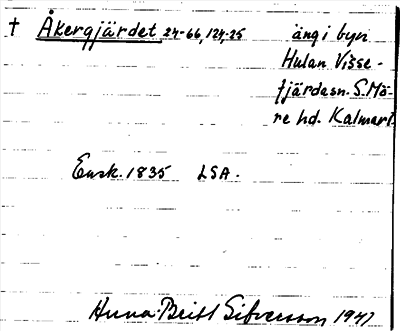 † Åkergjärdet 24-66, 124-25 äng i byn
Hulan Visse-
fjärdasn. S. Mö-
re hd. Kalmar l.
Ensk. 1835 LSA.
Anna-Britt Sifversson 1947